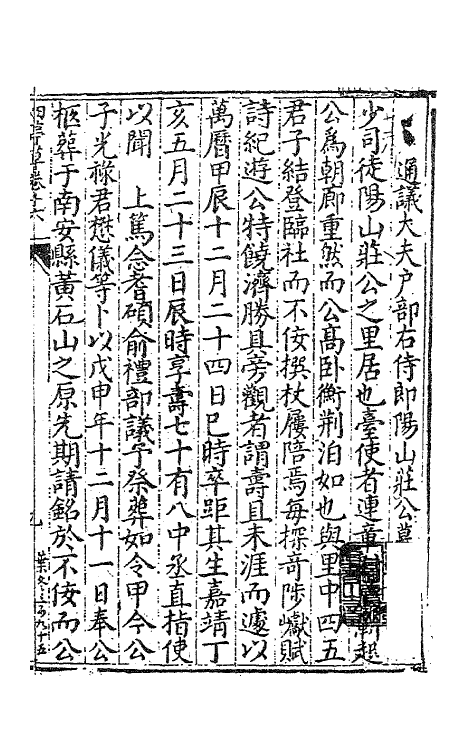 通議大夫户部右侍郎陽山莊公墓
少司徒陽山莊公之里居也臺使者連章起
公爲朝廊重然而公髙卧衡荆泊如也與里中四五
君子結登臨社而不佞撰杖屨陪焉每探奇陟巘賦
詩紀遊公特饒濟勝具旁觀者謂壽且未涯而遽以
萬曆甲辰十二月二十四日巳時卒距其生嘉靖丁
亥五月二十三日辰時享壽七十有八中丞直指使
以聞　上篤念耆碩俞禮部議予祭葬如令甲今公
子光祿君懋儀等卜以戊申年十二月十一日奉公
柩葬于南安縣黃石山之原先期請銘於不佞而公
卷十六
九